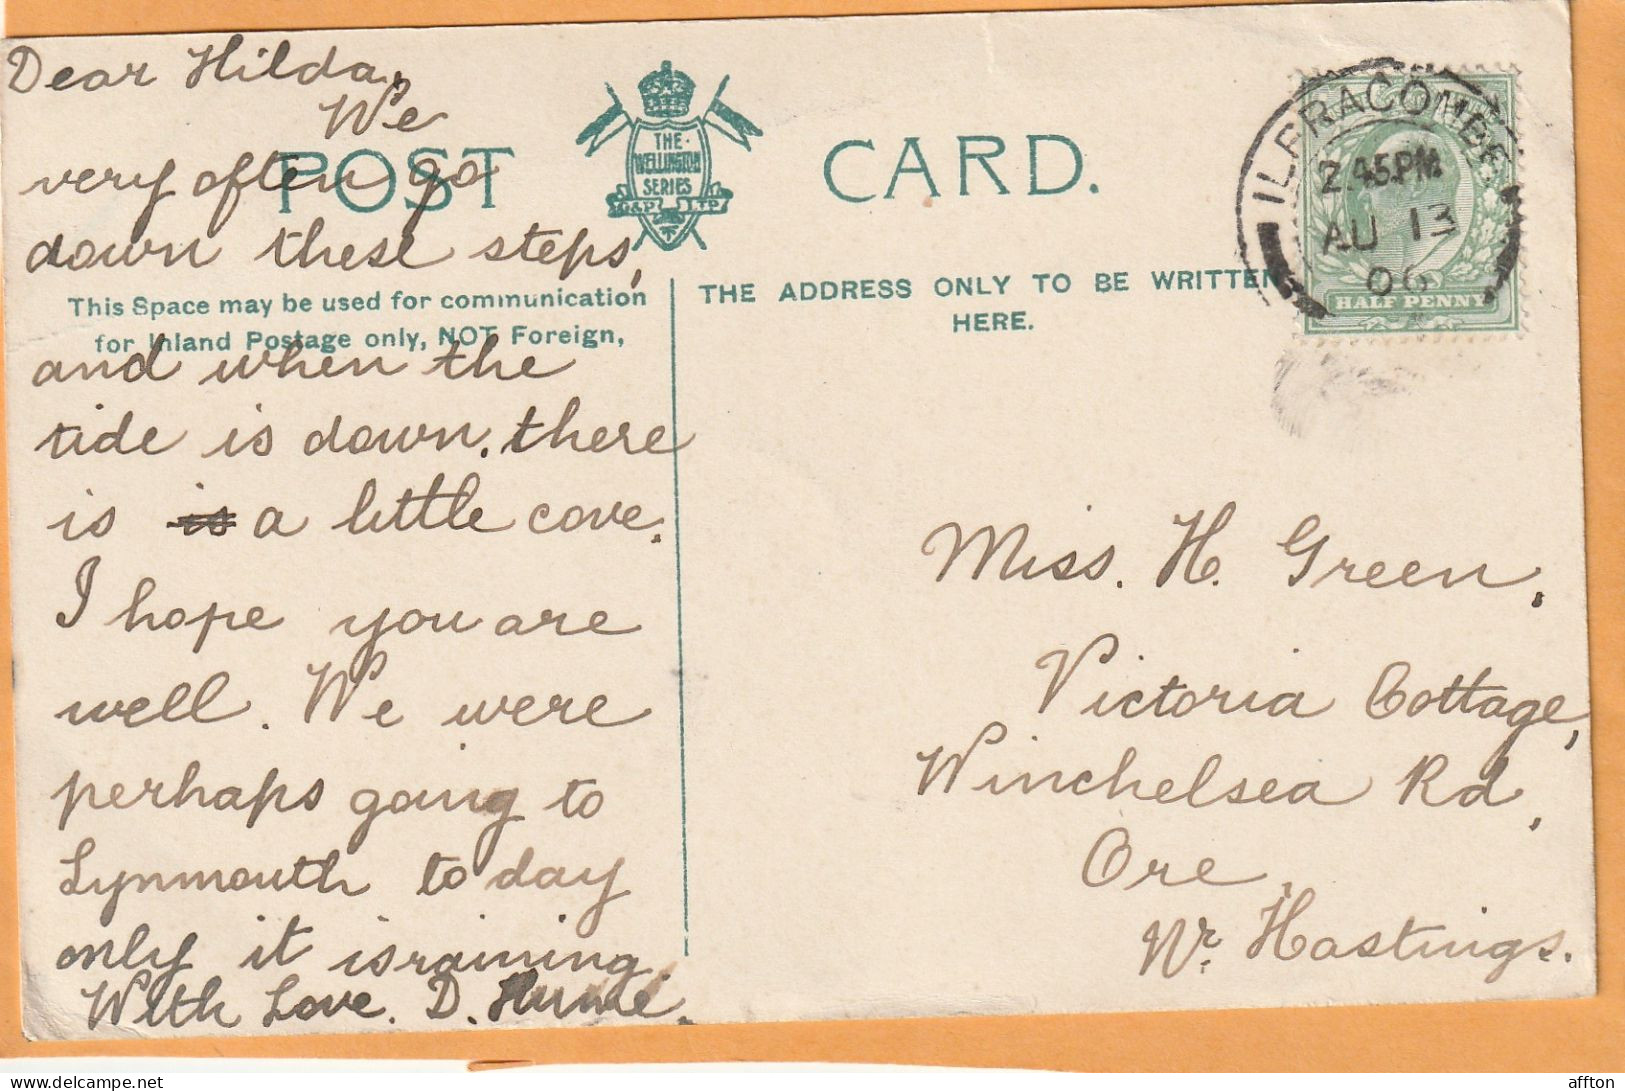 Dear Hilda,
We
very often go
down these steps,
and when the
tide is down, there
is is a little cove.
I hope you are
well. We were
perhaps going to
Lynmouth to day
only it is raining.
With Love. D.
POST CARD.
THE
WELLINGTON
SERIES
G&P LTD
This Space may be used for communication
for Inland Postage only, NOT Foreign,
THE ADDRESS ONLY TO BE WRITTEN
HERE.
ILFRACOMBE
2.45PM
AU 13
06
HALF PENNY
Miss. H. Green,
Victoria Cottage,
Winchelsea Rd,
Ore,
Nr. Hastings.
delcampe.net
affton